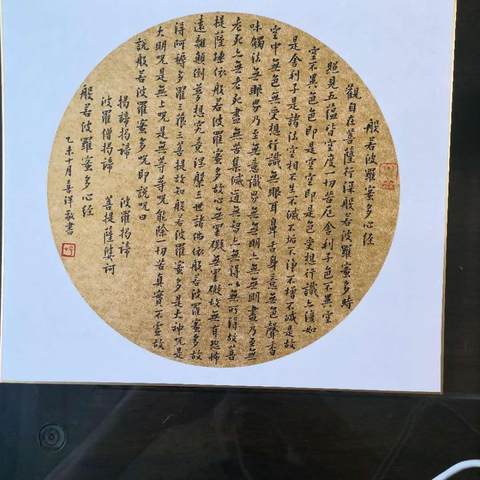 般若波羅蜜多心經
觀自在菩薩行深般若波羅蜜多時
照見五蘊皆空度一切苦厄舍利子色不異空
空不異色色即是空空即是色受想行識亦復如
是舍利子是諸法空相不生不滅不垢不淨不增不減是故
空中無色無受想行識無眼耳鼻舌身意無色聲香
味觸法無眼界乃至無意識界無無明亦無無明盡乃至無
老死亦無老死盡無苦集滅道無智亦無得以無所得故菩
提薩埵依般若波羅蜜多故心無罣礙無罣礙故無有恐怖
遠離顛倒夢想究竟涅槃三世諸佛依般若波羅蜜多故
得阿耨多羅三藐三菩提故知般若波羅蜜多是大神咒是
大明咒是無上咒是無等等咒能除一切苦真實不虛故
說般若波羅蜜多咒即說咒曰
揭諦揭諦 波羅揭諦
波羅僧揭諦 菩提薩婆訶
般若波羅蜜多心經
乙巳十月姜洋敬書